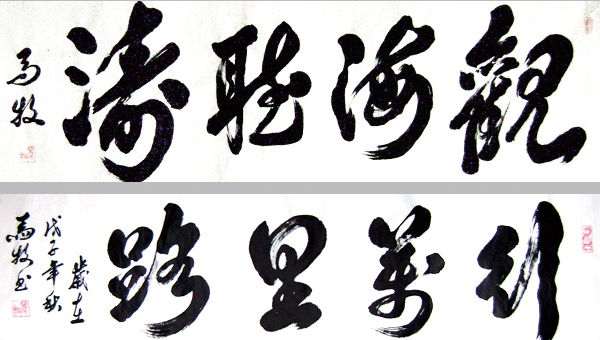 觀海聽濤
馬牧
行萬里路
歲在
戊子年秋
馬牧书